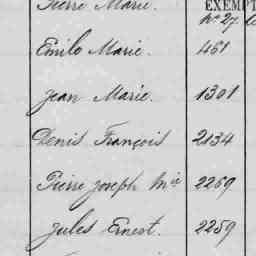 Pierre Marie.
EXEMPT
No 27
Emile Marie. 461
Jean Marie. 1301
Denis François 2134
Pierre Joseph Mie 2269
Jules Ernest. 2259